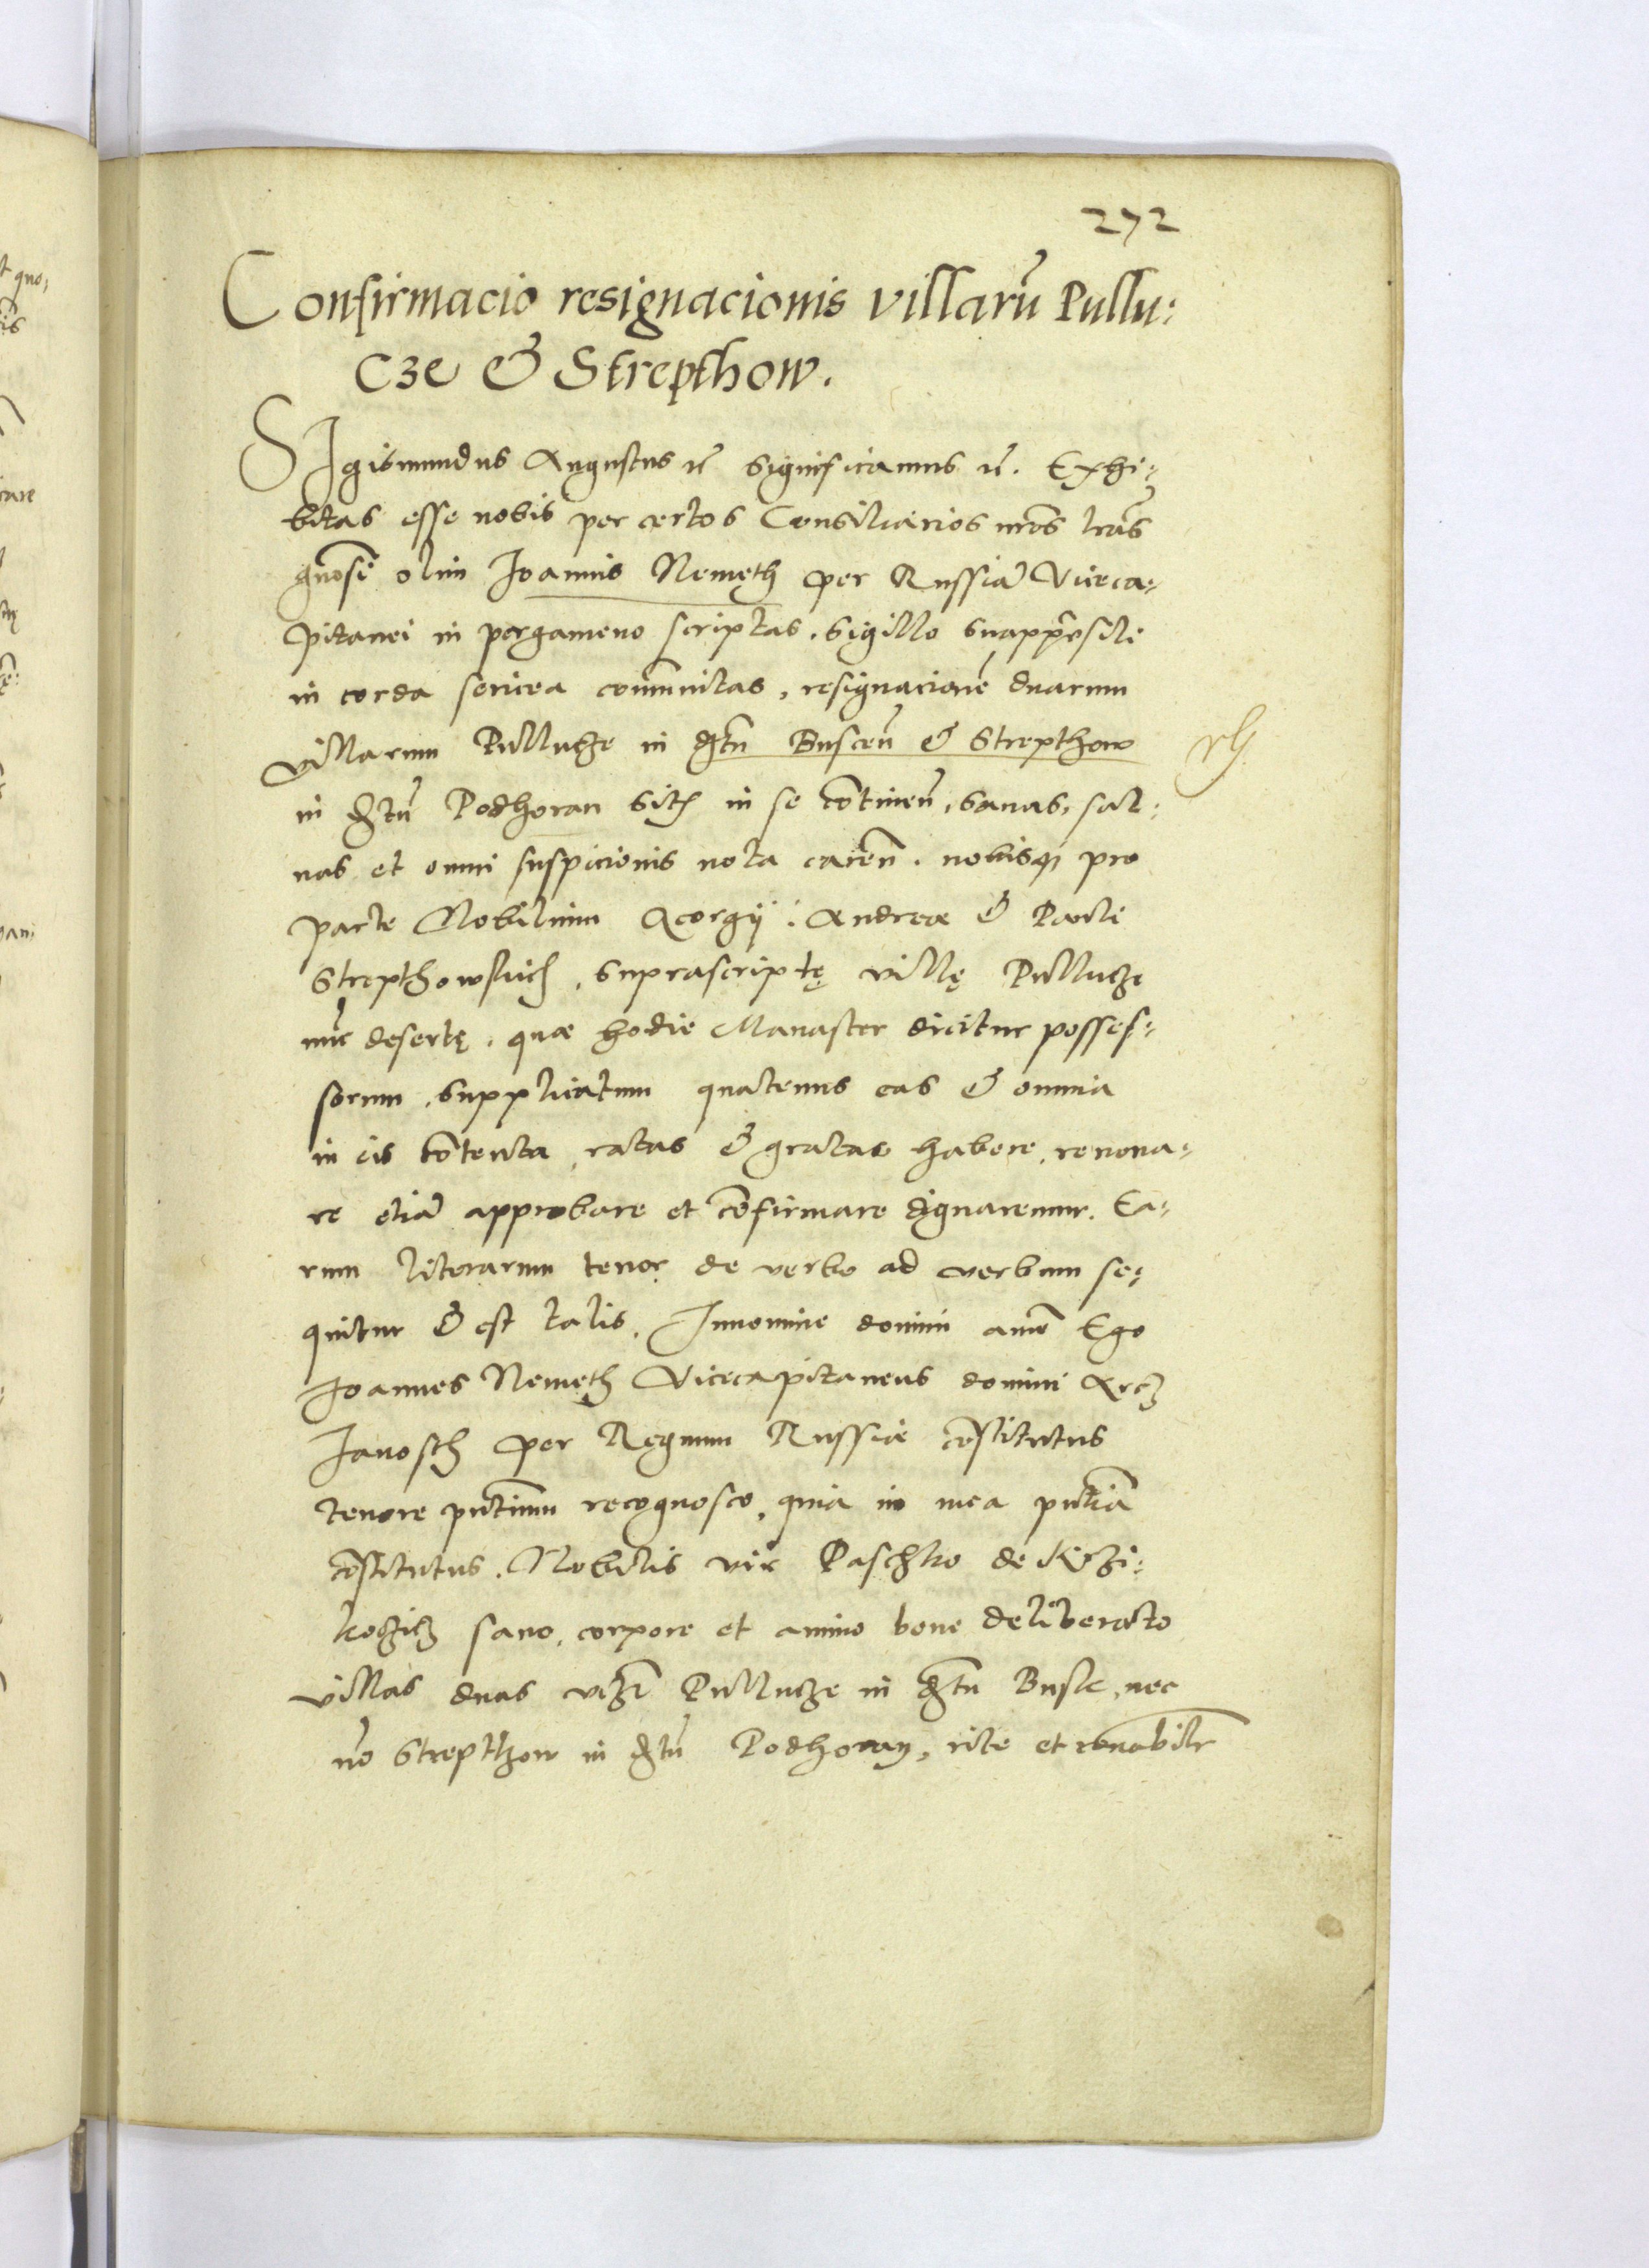 272
Confirmacio resignacionis villarũ Pullu:
cze & Strepthow.
SIgismundus Augustus rẽ significamus rẽ. Exhi:
bitas esse nobis per certos Consiliarios nr̃os lr̃as
gñosi olim Joannis Nemeth per Russiã Viceca:
pitanei in pergameno scriptas, sigillo
in corda sericea com̃unitas, resignacionẽ duarum
villarum Pullucze in dr̃tu Buscen̄ & Strepthow
in dr̃tu Podhoran sitꝭ in se cõtinen̄, sanas, sal:
vas et omni suspicionis nota caren̄. nobisqꝫ pro
parte Nobilium Georgij, Andreæ & Pauli
Strepthowskich, suprascriptę villę Pullucze
nũc desertę, quæ hodie Manaster dicitur posses:
sorum, supplicatum quatenus eas & omnia
in eis cõtenta, ratas & gratas habere, renova:
re etiã approbare et cõfirmare dignaremur. Ea:
rum literarum tenor de verbo ad verbum se:
quitur & est talis. In nomine domini amẽ Ego
Joannes Nemeth Vicecapitaneus domini
Janosch per Regnum Russiæ cõstitutus
tenore pñtium recognosco, quia in mea pñtiã
cõstitutus. Nobilis vir Paschko de Krzi:
koczicz sano, corpore et animo bone deliberato
villas duas vizꝫ Pullucze in dr̃tu Busk, nec
nõ Strepthow in dr̃tu Podhoray, rite et rõnabilr̃